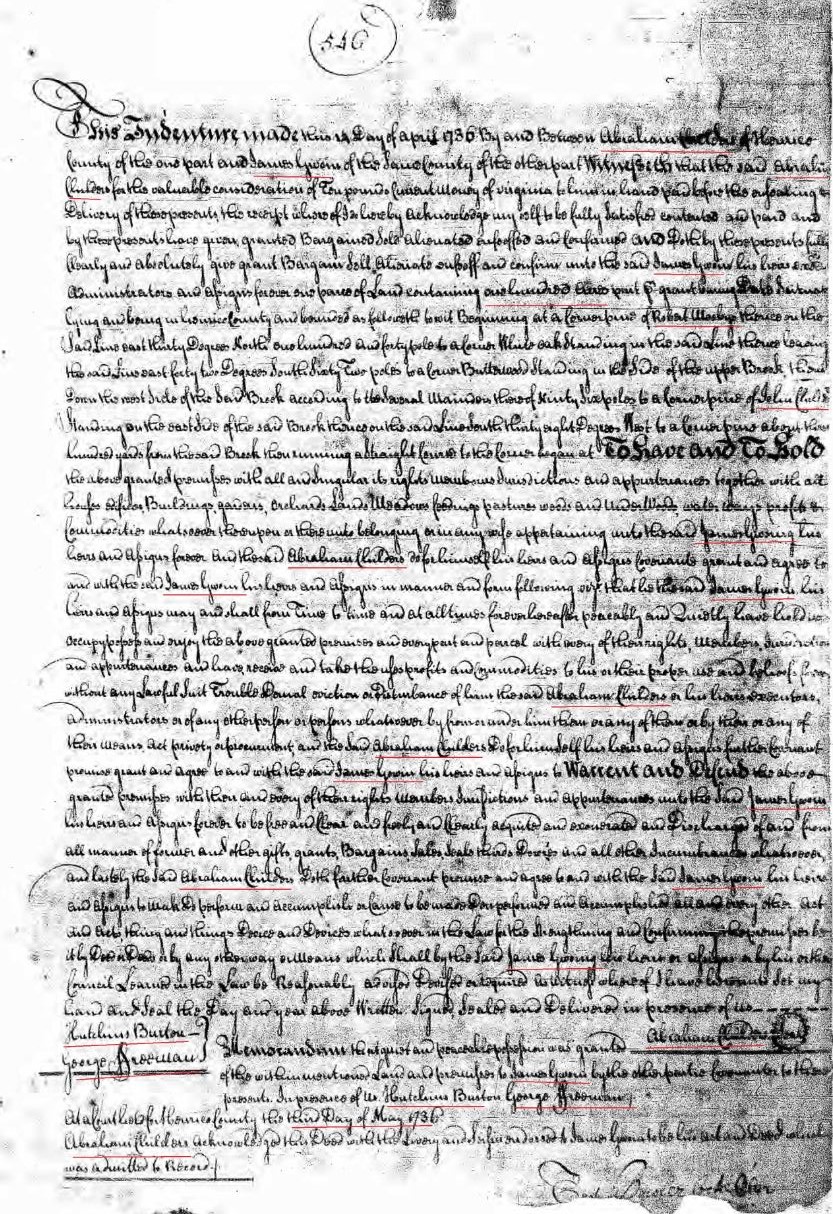 546
This Indenture made this 12 Day of april 1736 By and Between Abraham Childers of Henrico
County of the one part and James Gwin of the same County of the other part Witnesseth that the said Abraham
Childers for the valuable consideration of Ten pounds Current Money of virginia to him in hand paid before the ensealing &
Delivery of these presents the receipt where of I do hereby acknowledge my self to be fully Satisfied contented and paid and
by these presents have given, granted Bargained Sold Alienated enfeoffed and Confirmed and Doth by these presents fully
Clearly and absolutely give grant Bargain Sell Alienate enfeoff and confirm unto the said James Gwin his heirs
Administrators and assigns forever one parcel of Land containing one hundred acres part grant
lying and being in henrico County and bounded as followeth to wit Beginning at a Corner pine of Robert thence on the
Said Line east thirty Degrees North one hundred and forty pole to a Corner White oak Standing in the said Line thence leaving
the said Line east forty two Degrees South Sixty Two poles to a Corner Butterwood Standing in the Side of the upper Brook thence
Down the west Side of the Said Brook according to the Several Mainders thereof Ninty Six poles to a Corner pine of John Childers
Standing on the east Side of the said Brook thence on the said Line South thirty eight Degrees West to a Corner pine about three
hundred yards from the said Brook then running a straight Course to the Corner began at To Have and To Hold
the above granted premises with all and Singular its rights Members Jurisdictions and appurtenances together with all
houses edifices Buildings gardens, orchards Lands Meadows feedings pastures woods and Under Woods water ways profits &
Commodities whatsoever thereupon or there unto belonging or in any wise appertaining unto the said James Gwin his
heirs and assigns forever And the said Abraham Childers do for himself his heirs and assigns Covenante grant and agree to
and with the said James Gwin his heirs and assigns in manner and form following viz that he the said James Gwin his
heirs and assigns may and shall from Time to time and at all times forever hereafter peaceably and Quietly have hold
occupy possess and enjoy the above granted premises and every part and parcel with every of their rights, Members, Jurisdictions
and appurtenances and have receive and take the uses profits and commodities to his or their proper use and behoofs forever
without any Lawful Suit Trouble Denial eviction or Disturbance of him the said Abraham Childers or his heirs executors,
administrators or of any other person or persons whatsoever by from or under him them or any of them or by their or any of
their Means, act privety or procurement, and the Said Abraham Childers Do for him Self his heirs and assigns further Covenant
promise grant and agree to and with the said James Gwin his heirs and assigns to Warrent and Defend the above
granted premises with their and every of their rights Members Jurisdictions and appurtenances unto the Said James Gwin
his heirs and assigns forever to be free and Clear and freely and Clearly acquited and exonerated and Discharged of and from
all manner of former and other gifts, grants, Bargains Sales Deals thirds Devices and all other Incumbrances whatsoever,
and lastly the Said Abraham Childers Doth farther Covenant promise and agree to and with the Said James Gwin his heirs
and assigns to Make Do perform and accomplish or cause to be made Don performed and accomplished all and every other act
and acts thing and things Device and Devices whatsoever in the Law for the Strengthing and Confirming the premises be
it by Deed or Deeds or by any other way or Means which Shall by the Said James Gwin his heirs or assigns or by his or their
Council Learned in the Law be Reasonably advised Devised or required In witness where of I have hereunto Set my
hand and Seal the Day and year above Written Signed Sealed and Delivered in presence of us
Hutchins Burton Abraham Childers
George Freeman Memorandum that quiet and peaceable possession was granted
of the within mentioned Land and premises to James Gwin by the other partie Covenanter to these
presents. In presence of us Hutchins Burton George Freeman
At a Court held for Henrico County the third Day of May 1736
Abraham Childers acknowledged this Deed with the Livery and Seisin endorsed to James Gwin to be his act and Deed which
was admitted to Record